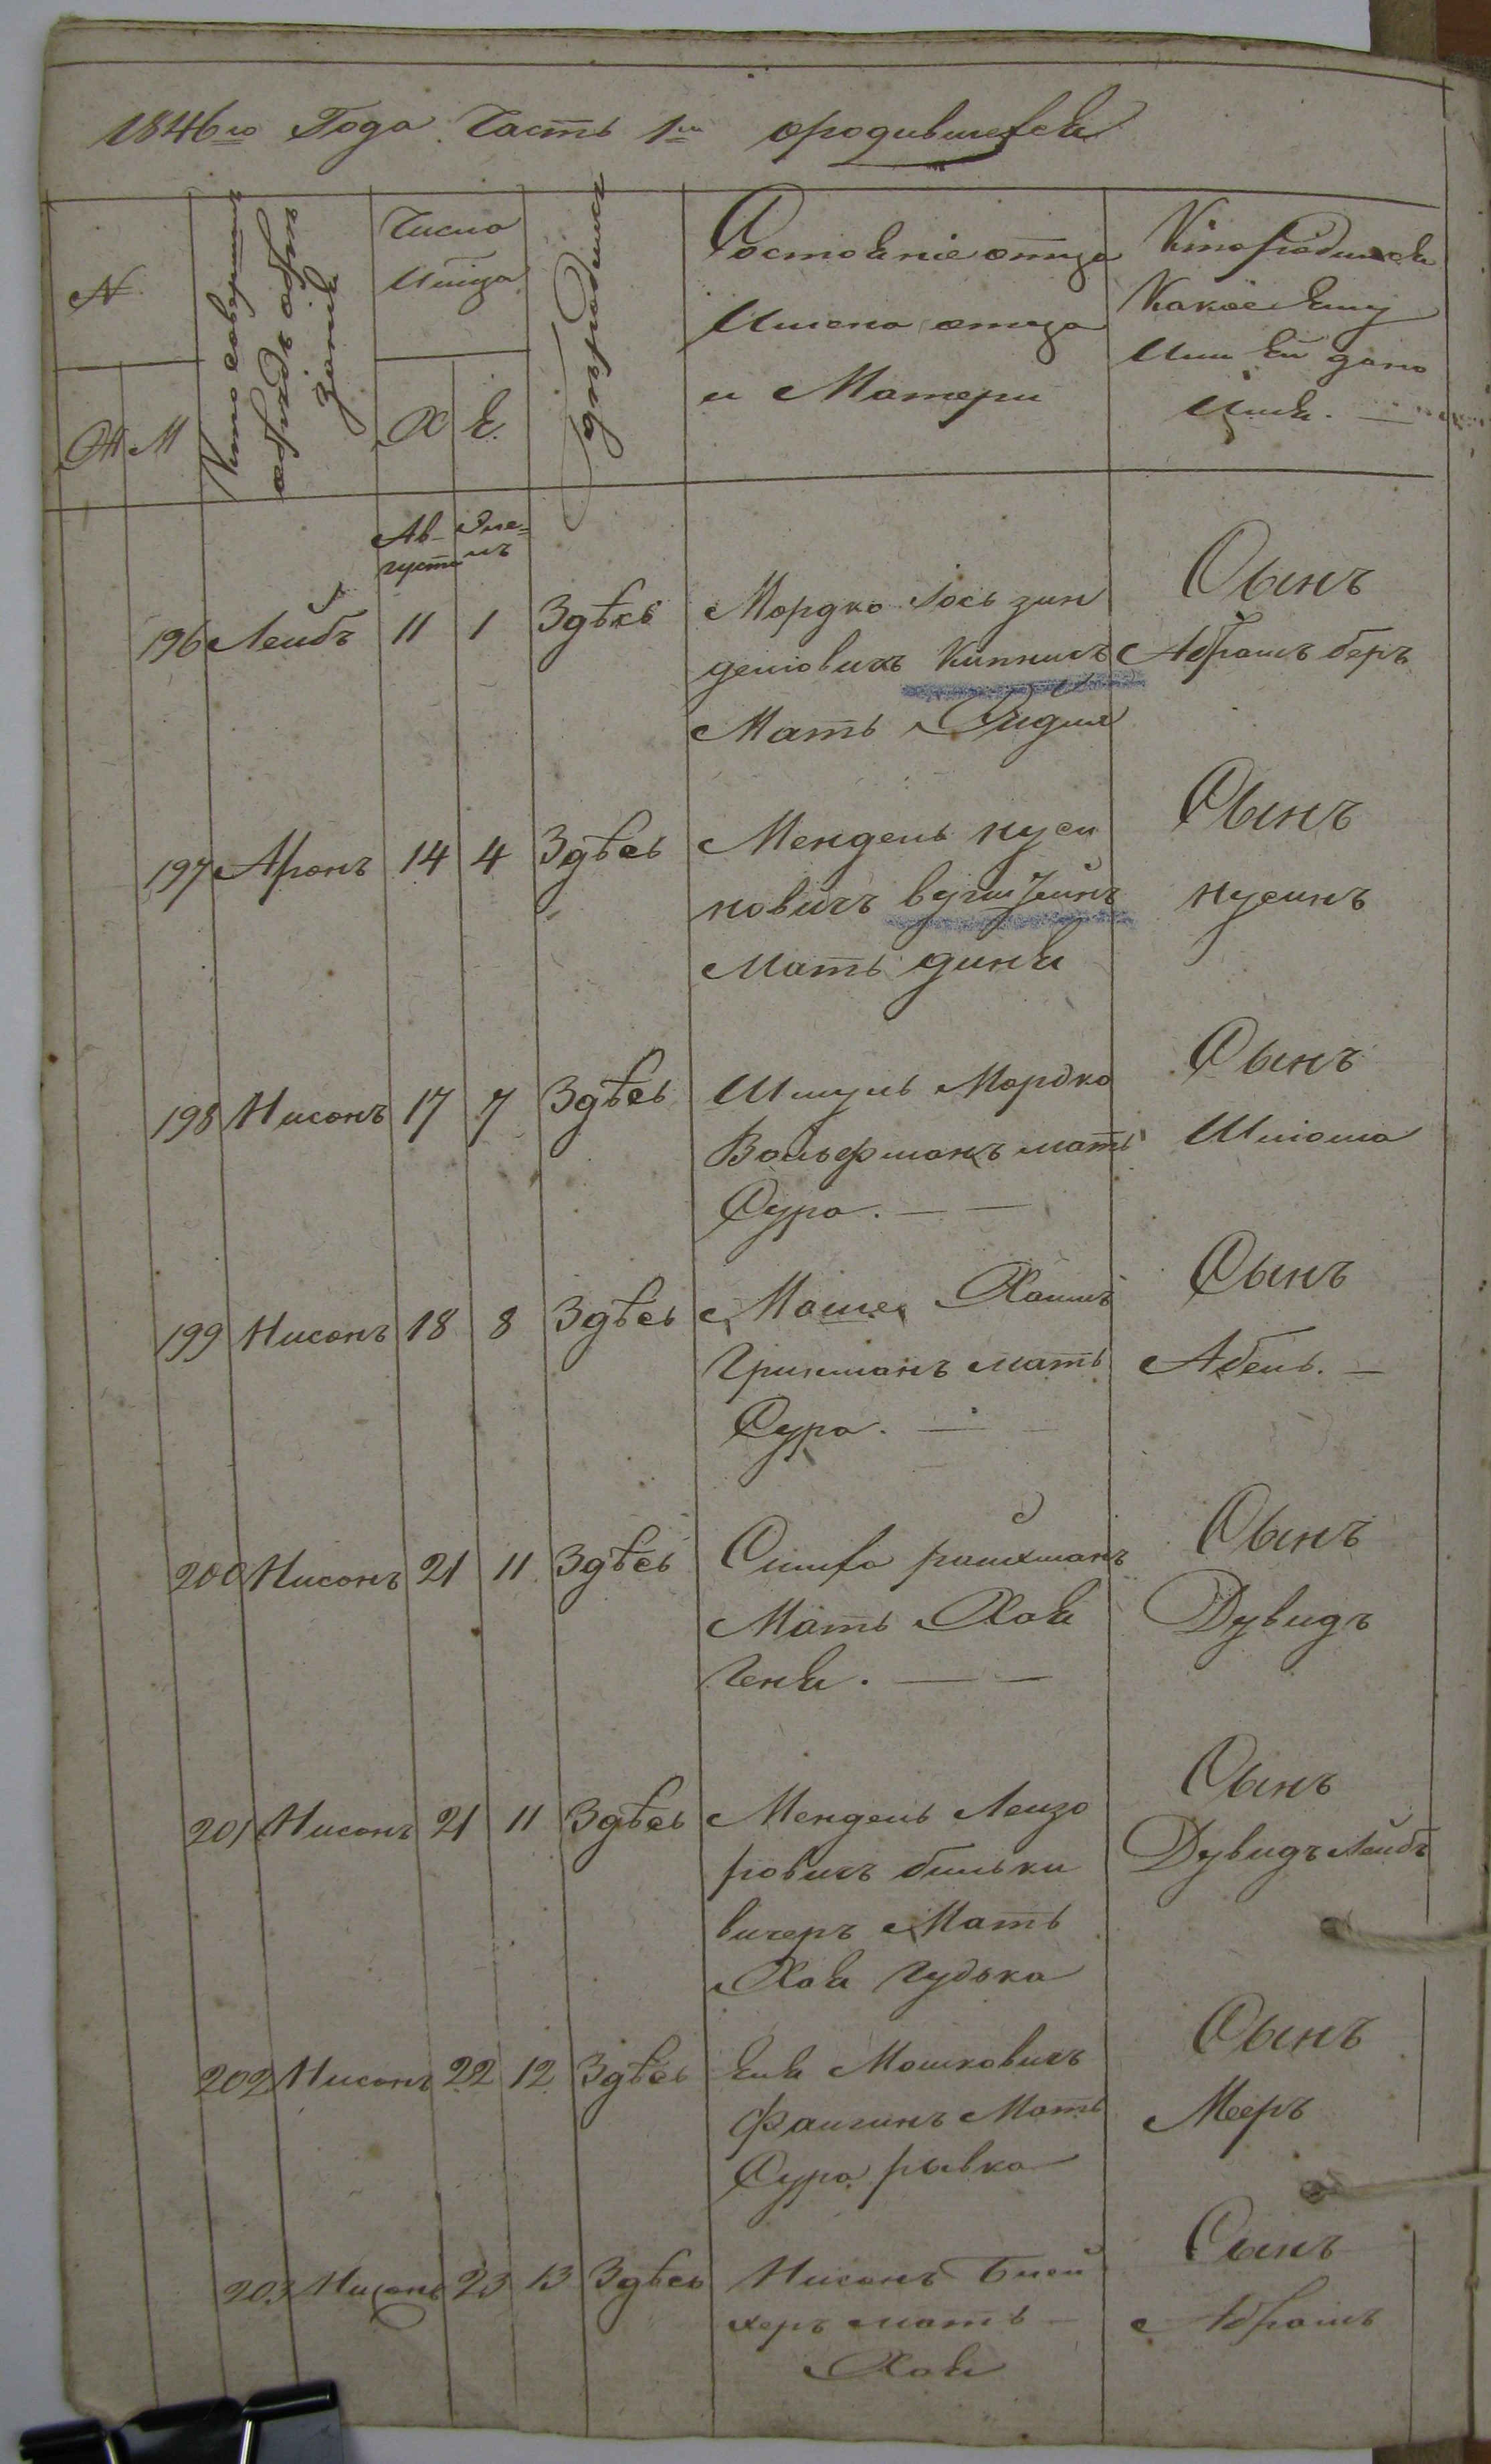 1846го Года Часть 1я ородившехся
№
Ж М
Кто совершалъ
обрядъ обре
зания
Число
Мца
Х Е.
Где родился
Состояніе отца
Имена отца
и Матери
Кто родился
Какое Ему
Или Ей дано
Имя. —
Ав- Эле-
густа лъ
196 Лейбъ 11 1 Здѣсь Мордко Іось зин Сынъ
деловичъ Кипнисъ Абрамъ беръ
Мать
197 Аронъ 14 4 Здѣсь Мендель нуси Сынъ
новичъ нусинъ
Мать диня
198 Нисонъ 17 7 Здѣсь Шмуль Мордко Сынъ
Вольфманъ мать Шліома
Сура. — —
199 Нисонъ 18 8 Здѣсь Моше Хаимъ Сынъ
Гринманъ мать Абель. —
Сура. — —
200 Нисонъ 21 11 Здѣсь Симха райхманъ Сынъ
Мать Хая Дувидъ
Геня. — —
201 Нисонъ 21 11 Здѣсь Мендель Лейзо Сынъ
ровичъ бильки Дувидъ Лейбъ
вичеръ Мать
Хая Гудька
202 Нисонъ 22 12 Здѣсь Еля Мошковичъ Сынъ
Фаигинъ Мать Мееръ
Сура рывка
203 Нисонъ 23 13 Здѣсь Нисонъ Блей Сынъ
херъ мать — Абрамъ
Хая